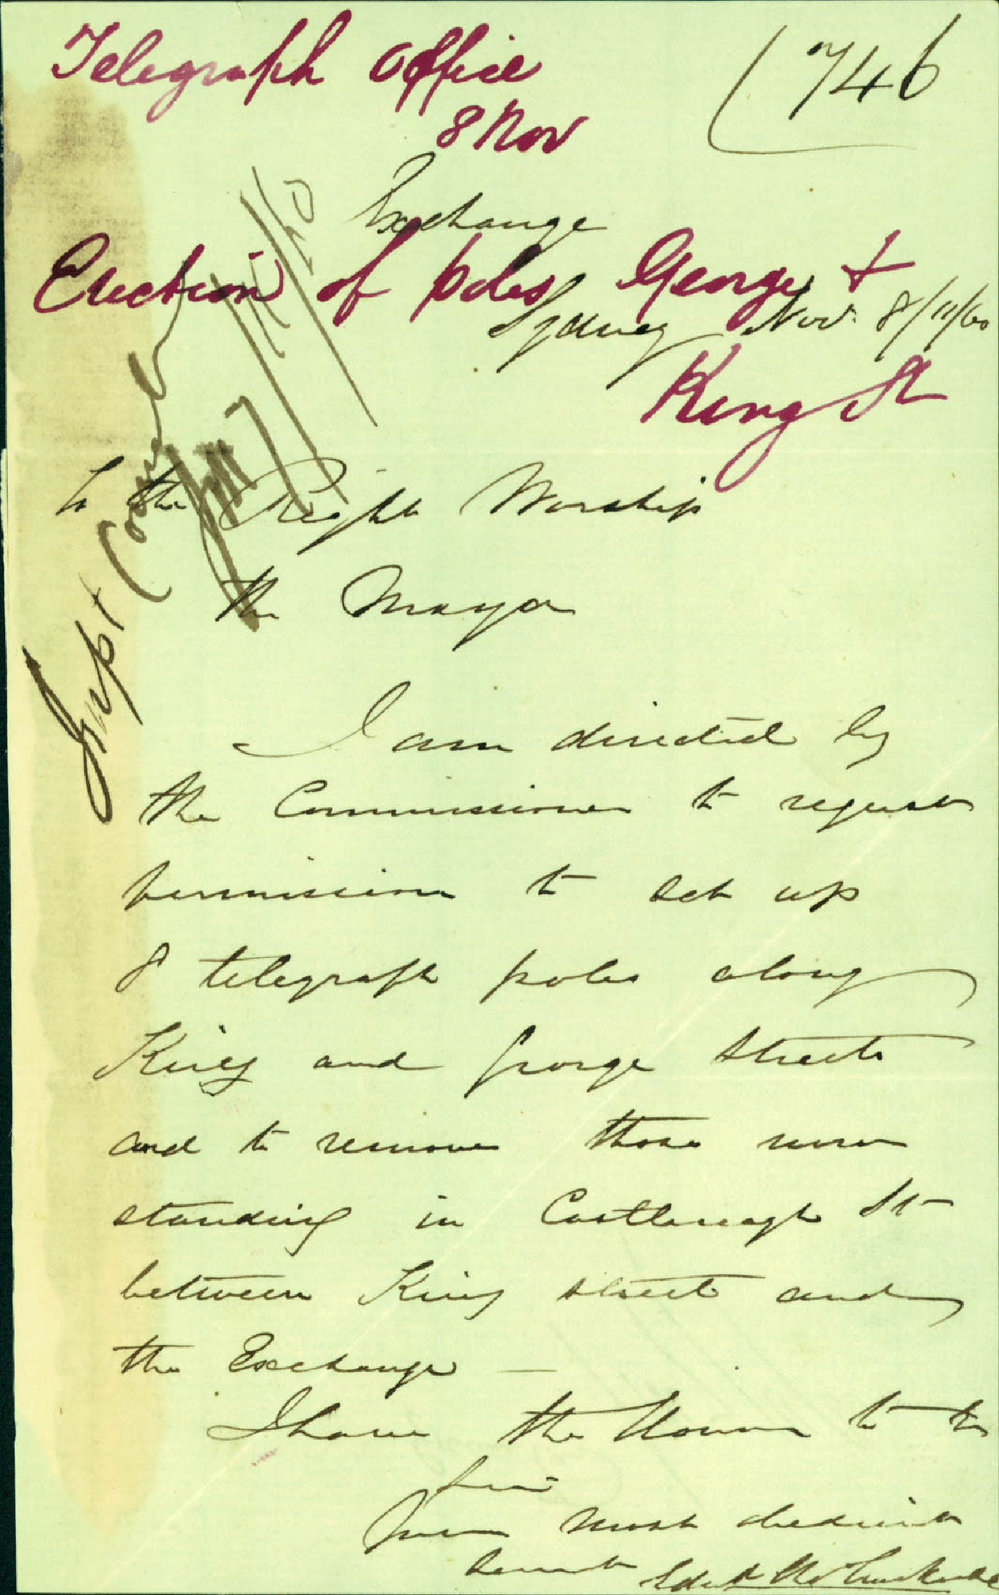 Telegraph Office
746
8 Nov
Exchange
Erection of poles George &
Sydney Nov. 8/11/60
King St
To the Right Worship
the Mayor
I am directed by
the Commissioner to request
permission to set up
8 telegraph poles along
King and George Streets
and to remove those now
standing in Castlereagh St
between King street and
the Exchange —
I have the Honor to be
Sir
Your most obedient
Servant
Supt